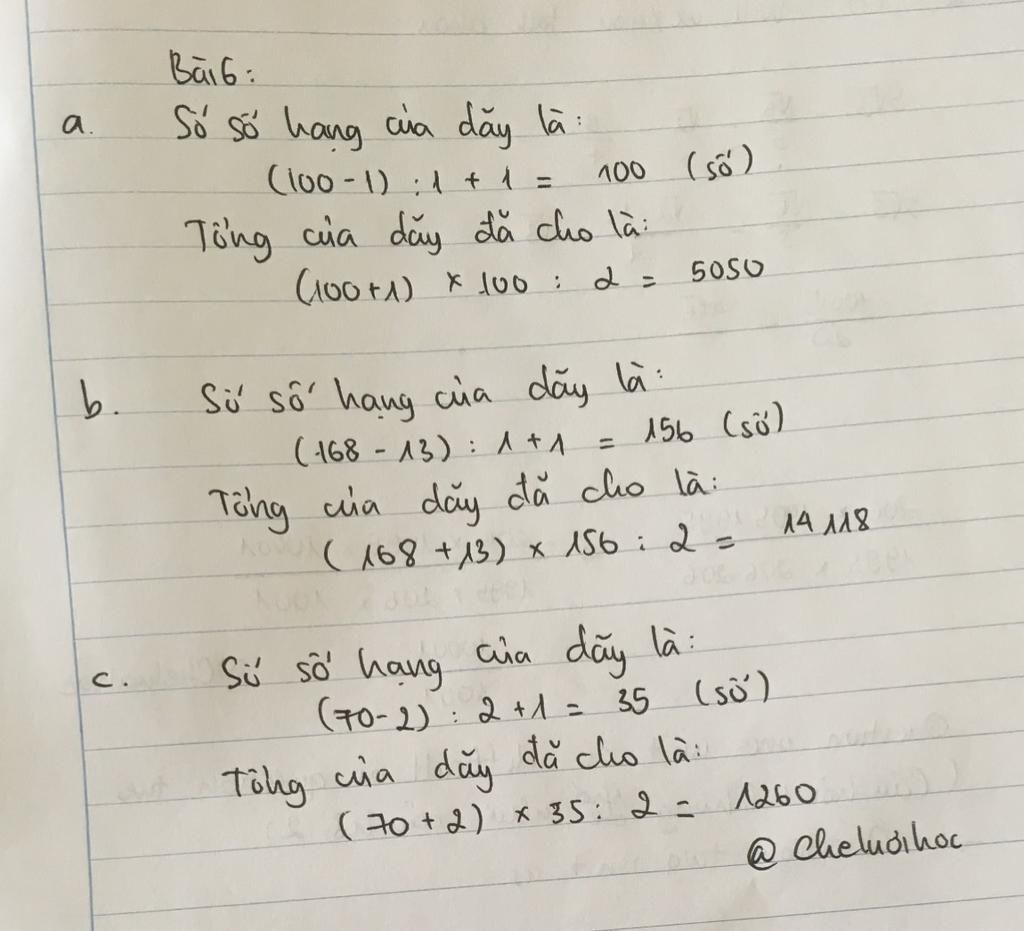 Bài 6:
a. Số số hạng của dãy là:
(100-1) : 1 + 1 = 100 (số)
Tổng của dãy đã cho là:
(100+1) × 100 : 2 = 5050
b. Số số hạng của dãy là:
(168 - 13) : 1 + 1 = 156 (số)
Tổng của dãy đã cho là:
(168 + 13) × 156 : 2 = 14 118
c. Số số hạng của dãy là:
(70-2) : 2 + 1 = 35 (số)
Tổng của dãy đã cho là:
(70 + 2) × 35 : 2 = 1260
@ Cheluoihoc